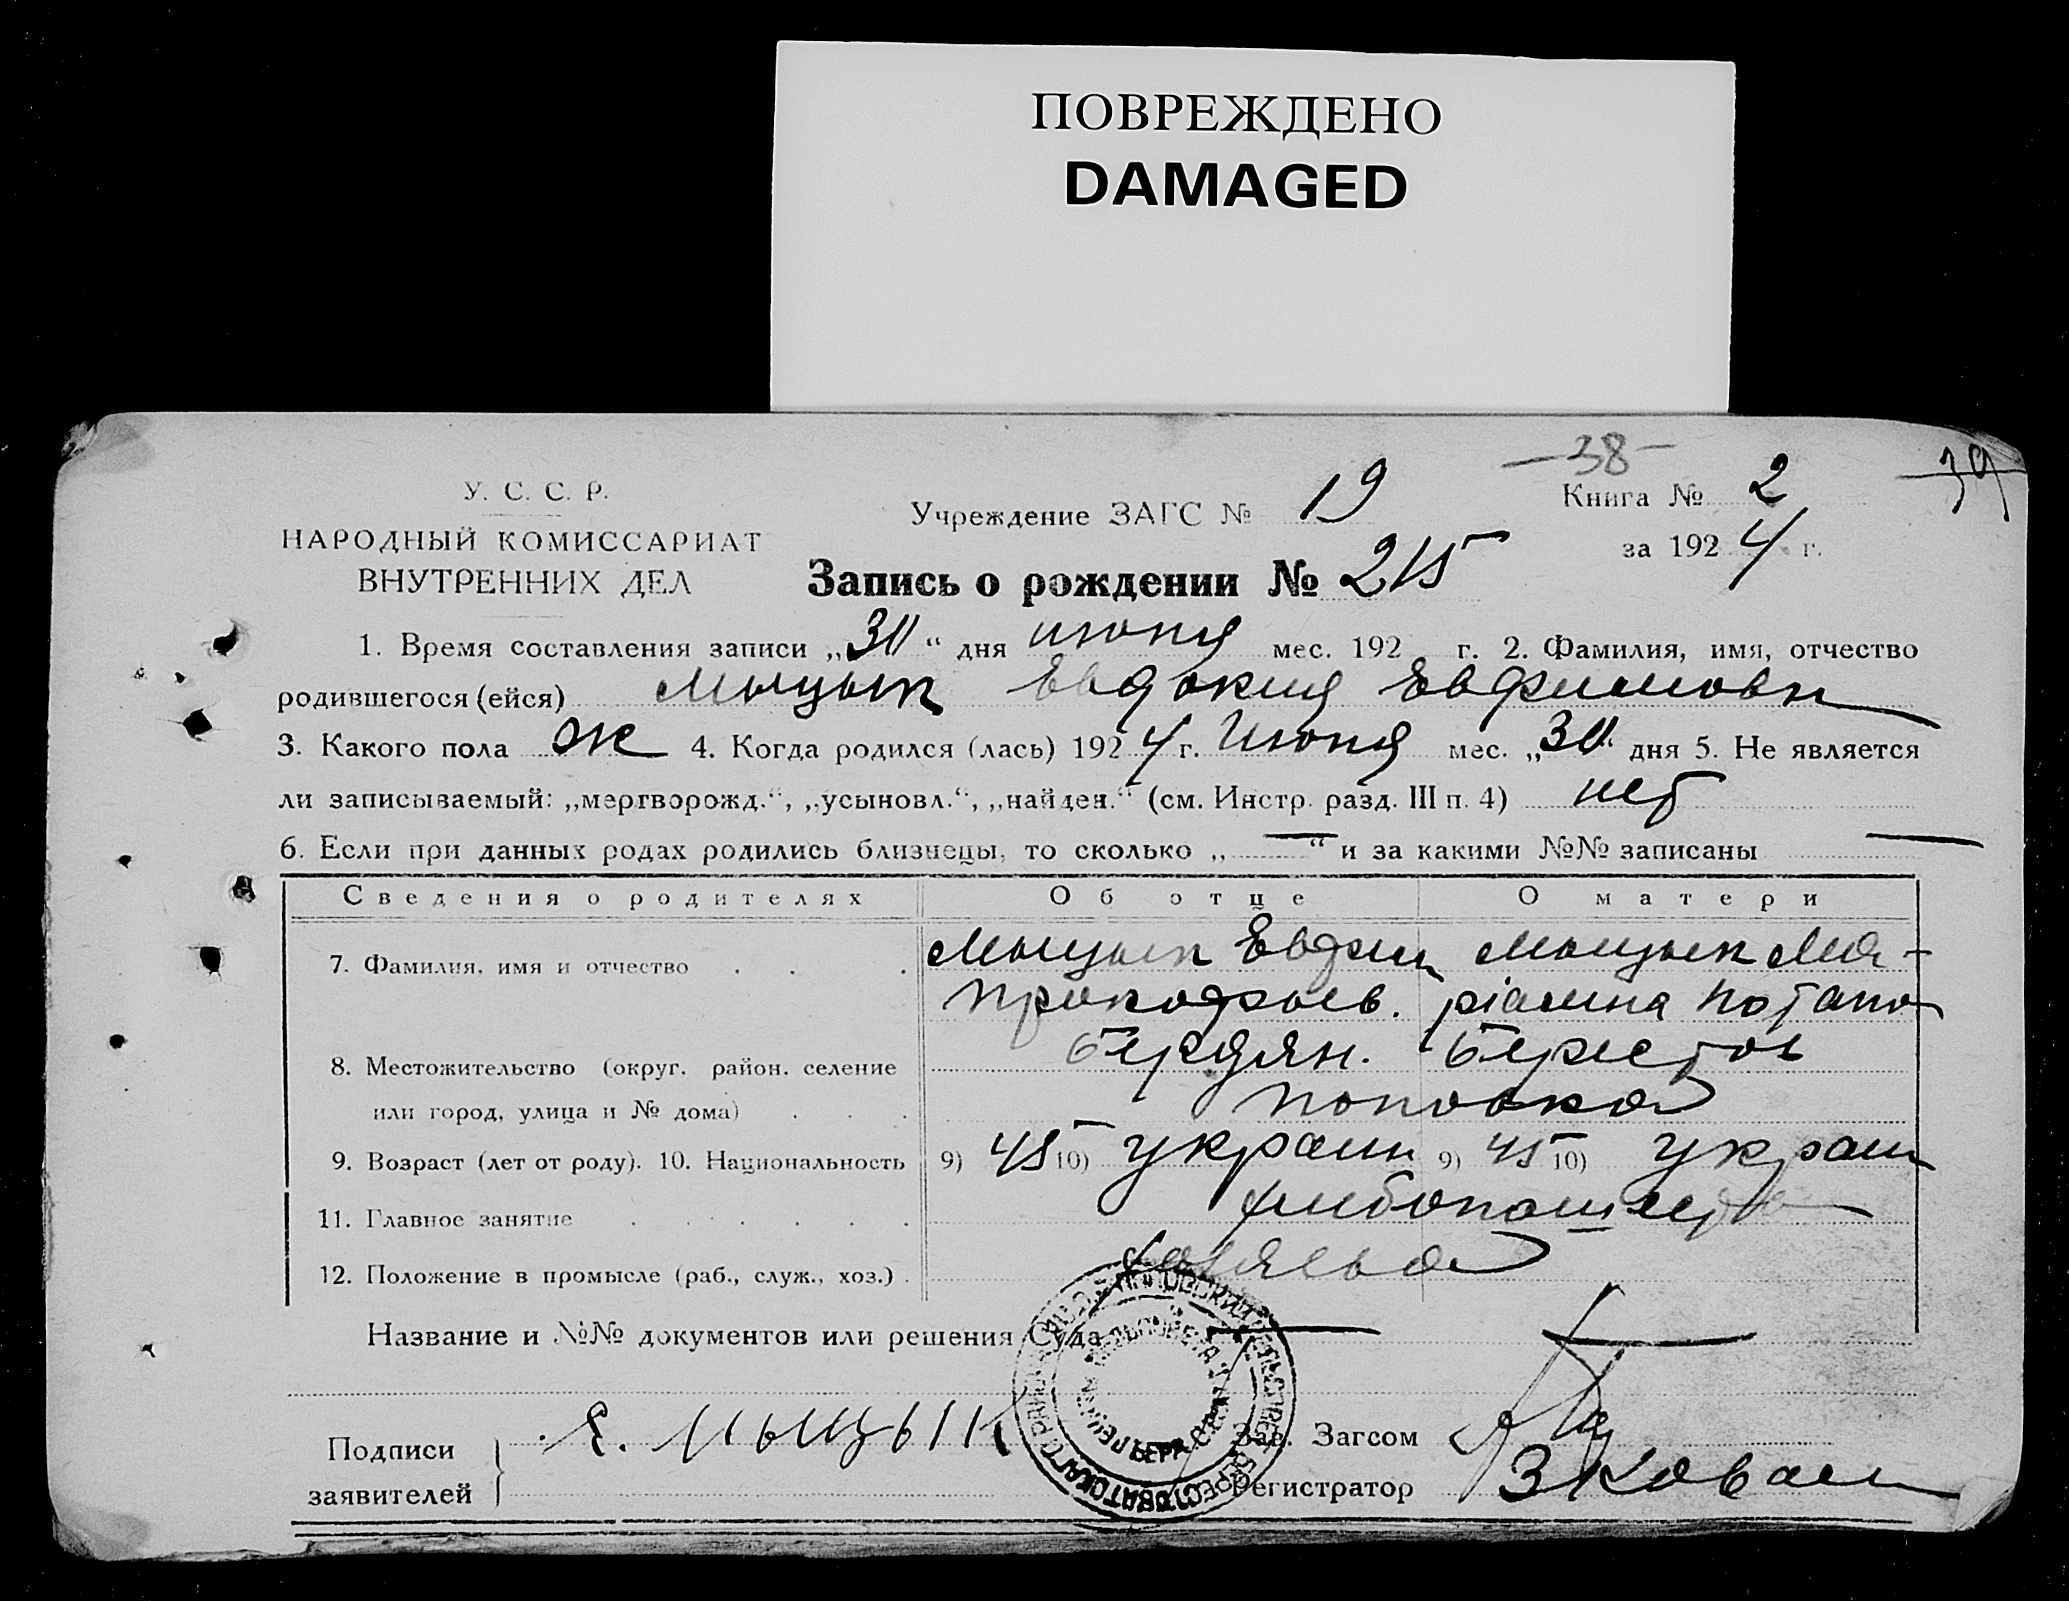 ПОВРЕЖДЕНО
DAMAGED
—38—
39
У. С. С. Р.
НАРОДНЫЙ КОМИССАРИАТ
ВНУТРЕННИХ ДЕЛ
Учреждение ЗАГС № 19
Книга № 2
за 1924 г.
Запись о рождении № 215
1. Время составления записи „30“ дня июня мес. 192 г. 2. Фамилия, имя, отчество
родившегося (ейся) Мыцык Евдокия Евфимовн
3. Какого пола ж 4. Когда родился (лась) 1924 г. Июня мес. „30“ дня 5. Не является
ли записываемый: „мертворожд.“, „усыновл.“, „найден.“ (см. Инстр. разд. III п. 4) нет
6. Если при данных родах родились близнецы, то сколько „—“ и за какими №№ записаны —
Сведения о родителях Об отце О матери
7. Фамилия, имя и отчество Мыцык Евфим Мыцык Ма-
Прокофьев. ріанна Потапо
8. Местожительство (округ. район. селение Бердян. Берестов
или город, улица и № дома) Поповка
9. Возраст (лет от роду). 10. Национальность 9) 45 10) украин 9) 45 10) украин
11. Главное занятие хлибопашец
12. Положение в промысле (раб., служ., хоз.) хозяева
Название и №№ документов или решения Суда — —
Подписи заявителей Е. Мыцык
Зав. Загсом
Регистратор З Коваль